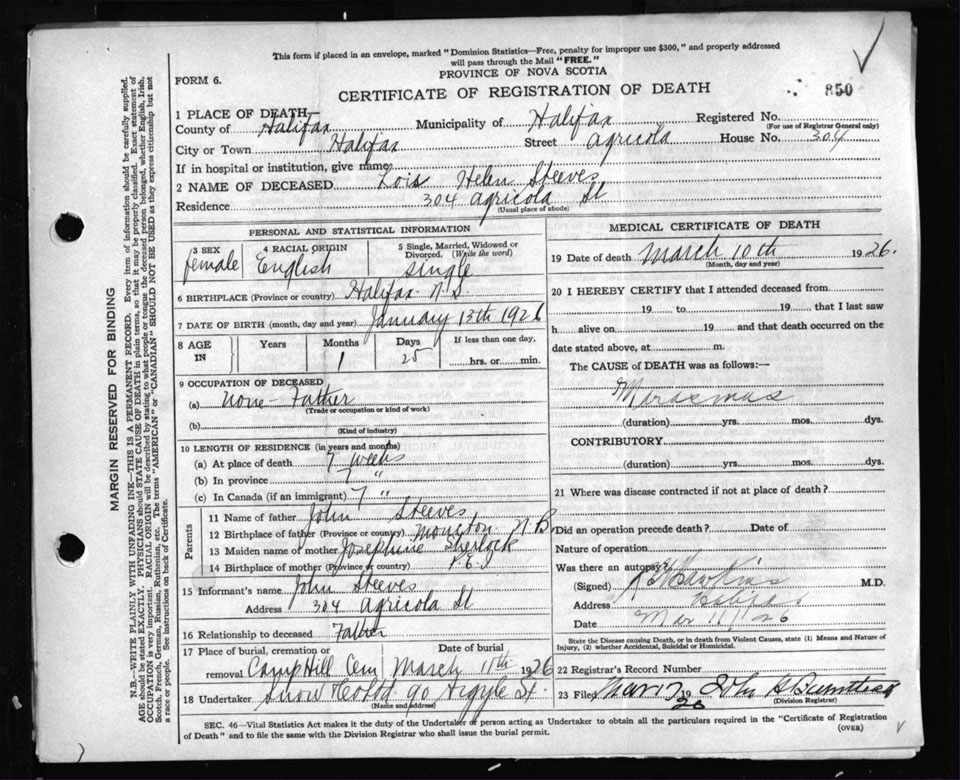 This form if placed in an envelope, marked "Dominion Statistics—Free, penalty for improper use $300," and properly addressed
will pass through the Mail "FREE."
PROVINCE OF NOVA SCOTIA
FORM 6.
CERTIFICATE OF REGISTRATION OF DEATH
850
1 PLACE OF DEATH
County of Halifax Municipality of Halifax Registered No.
(For use of Registrar General only)
City or Town Halifax Street Agricola House No. 304
If in hospital or institution, give name
2 NAME OF DECEASED Lois Helen Steeves
Residence 304 Agricola St
(Usual place of abode)
PERSONAL AND STATISTICAL INFORMATION
3 SEX female
4 RACIAL ORIGIN English
5 Single, Married, Widowed or Divorced. (Write the word) single
6 BIRTHPLACE (Province or country) Halifax N.S.
7 DATE OF BIRTH (month, day and year) January 13th 1926
8 AGE IN Years Months Days If less than one day,
1 25 hrs. or min.
9 OCCUPATION OF DECEASED
(a) none - Father
(Trade or occupation or kind of work)
(b)
(Kind of industry)
10 LENGTH OF RESIDENCE (in years and months)
(a) At place of death 7 weeks
(b) In province 7 "
(c) In Canada (if an immigrant) 7 "
Parents
11 Name of father John Steeves
12 Birthplace of father (Province or country) Moncton N.B.
13 Maiden name of mother Josephine Sherlock
14 Birthplace of mother (Province or country) P.E.I
15 Informant's name John Steeves
Address 304 Agricola St
16 Relationship to deceased Father
17 Place of burial, cremation or removal Camp Hill Cem
Date of burial March 11th 1926
18 Undertaker Snow Co Ltd. 90 Argyle St.
(Name and address)
MEDICAL CERTIFICATE OF DEATH
19 Date of death March 10th 1926.
(Month, day and year)
20 I HEREBY CERTIFY that I attended deceased from
19 to 19 that I last saw
h alive on 19 and that death occurred on the
date stated above, at m.
The CAUSE of DEATH was as follows:—
Marasmus
(duration) yrs. mos. dys.
CONTRIBUTORY
(duration) yrs. mos. dys.
21 Where was disease contracted if not at place of death?
Did an operation precede death? Date of
Nature of operation
Was there an autopsy?
(Signed) Hawkins M.D.
Address Halifax
Date Mar 11/26
State the Disease causing Death, or in death from Violent Causes, state (1) Means and Nature of
Injury, (2) whether Accidental, Suicidal or Homicidal.
22 Registrar's Record Number
23 Filed Mar 12 1926 John
(Division Registrar)
SEC. 46—Vital Statistics Act makes it the duty of the Undertaker or person acting as Undertaker to obtain all the particulars required in the "Certificate of Registration
of Death" and to file the same with the Division Registrar who shall issue the burial permit.
(OVER)
MARGIN RESERVED FOR BINDING
N.B.—WRITE PLAINLY WITH UNFADING INK—THIS IS A PERMANENT RECORD. Every item of information should be carefully supplied.
AGE should be stated EXACTLY. PHYSICIANS should STATE CAUSE OF DEATH in plain terms, so that it may be properly classified. Exact statement of
OCCUPATION is very important. RACIAL ORIGIN will be described by stating to what people or tongue the deceased person belonged, whether English, Irish,
Scotch, French, German, Russian, Ruthenian, etc. The terms "AMERICAN" or "CANADIAN" SHOULD NOT BE USED as they express citizenship but not
a race or people. See instructions on back of Certificate.